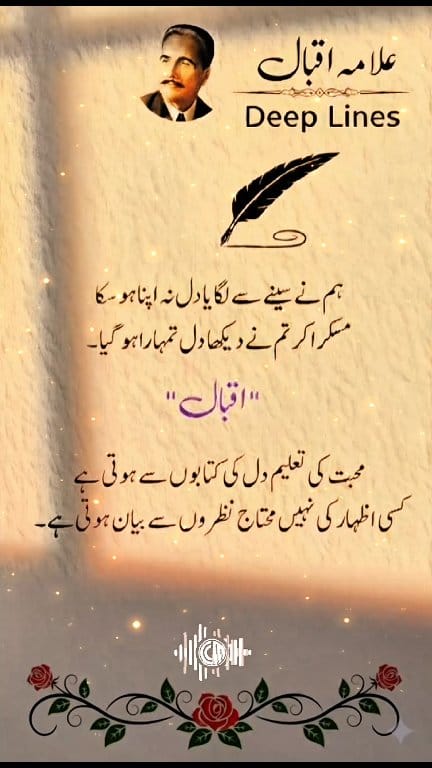 علامہ اقبال
Deep Lines
ہم نے سینے سے لگایا دل نہ اپنا ہو سکا
مسکرا کر تم نے دیکھا دل تمہارا ہو گیا۔
"اقبال"
محبت کی تعلیم دل کی کتابوں سے ہوتی ہے
کسی اظہار کی نہیں محتاج نظروں سے بیان ہوتی ہے۔